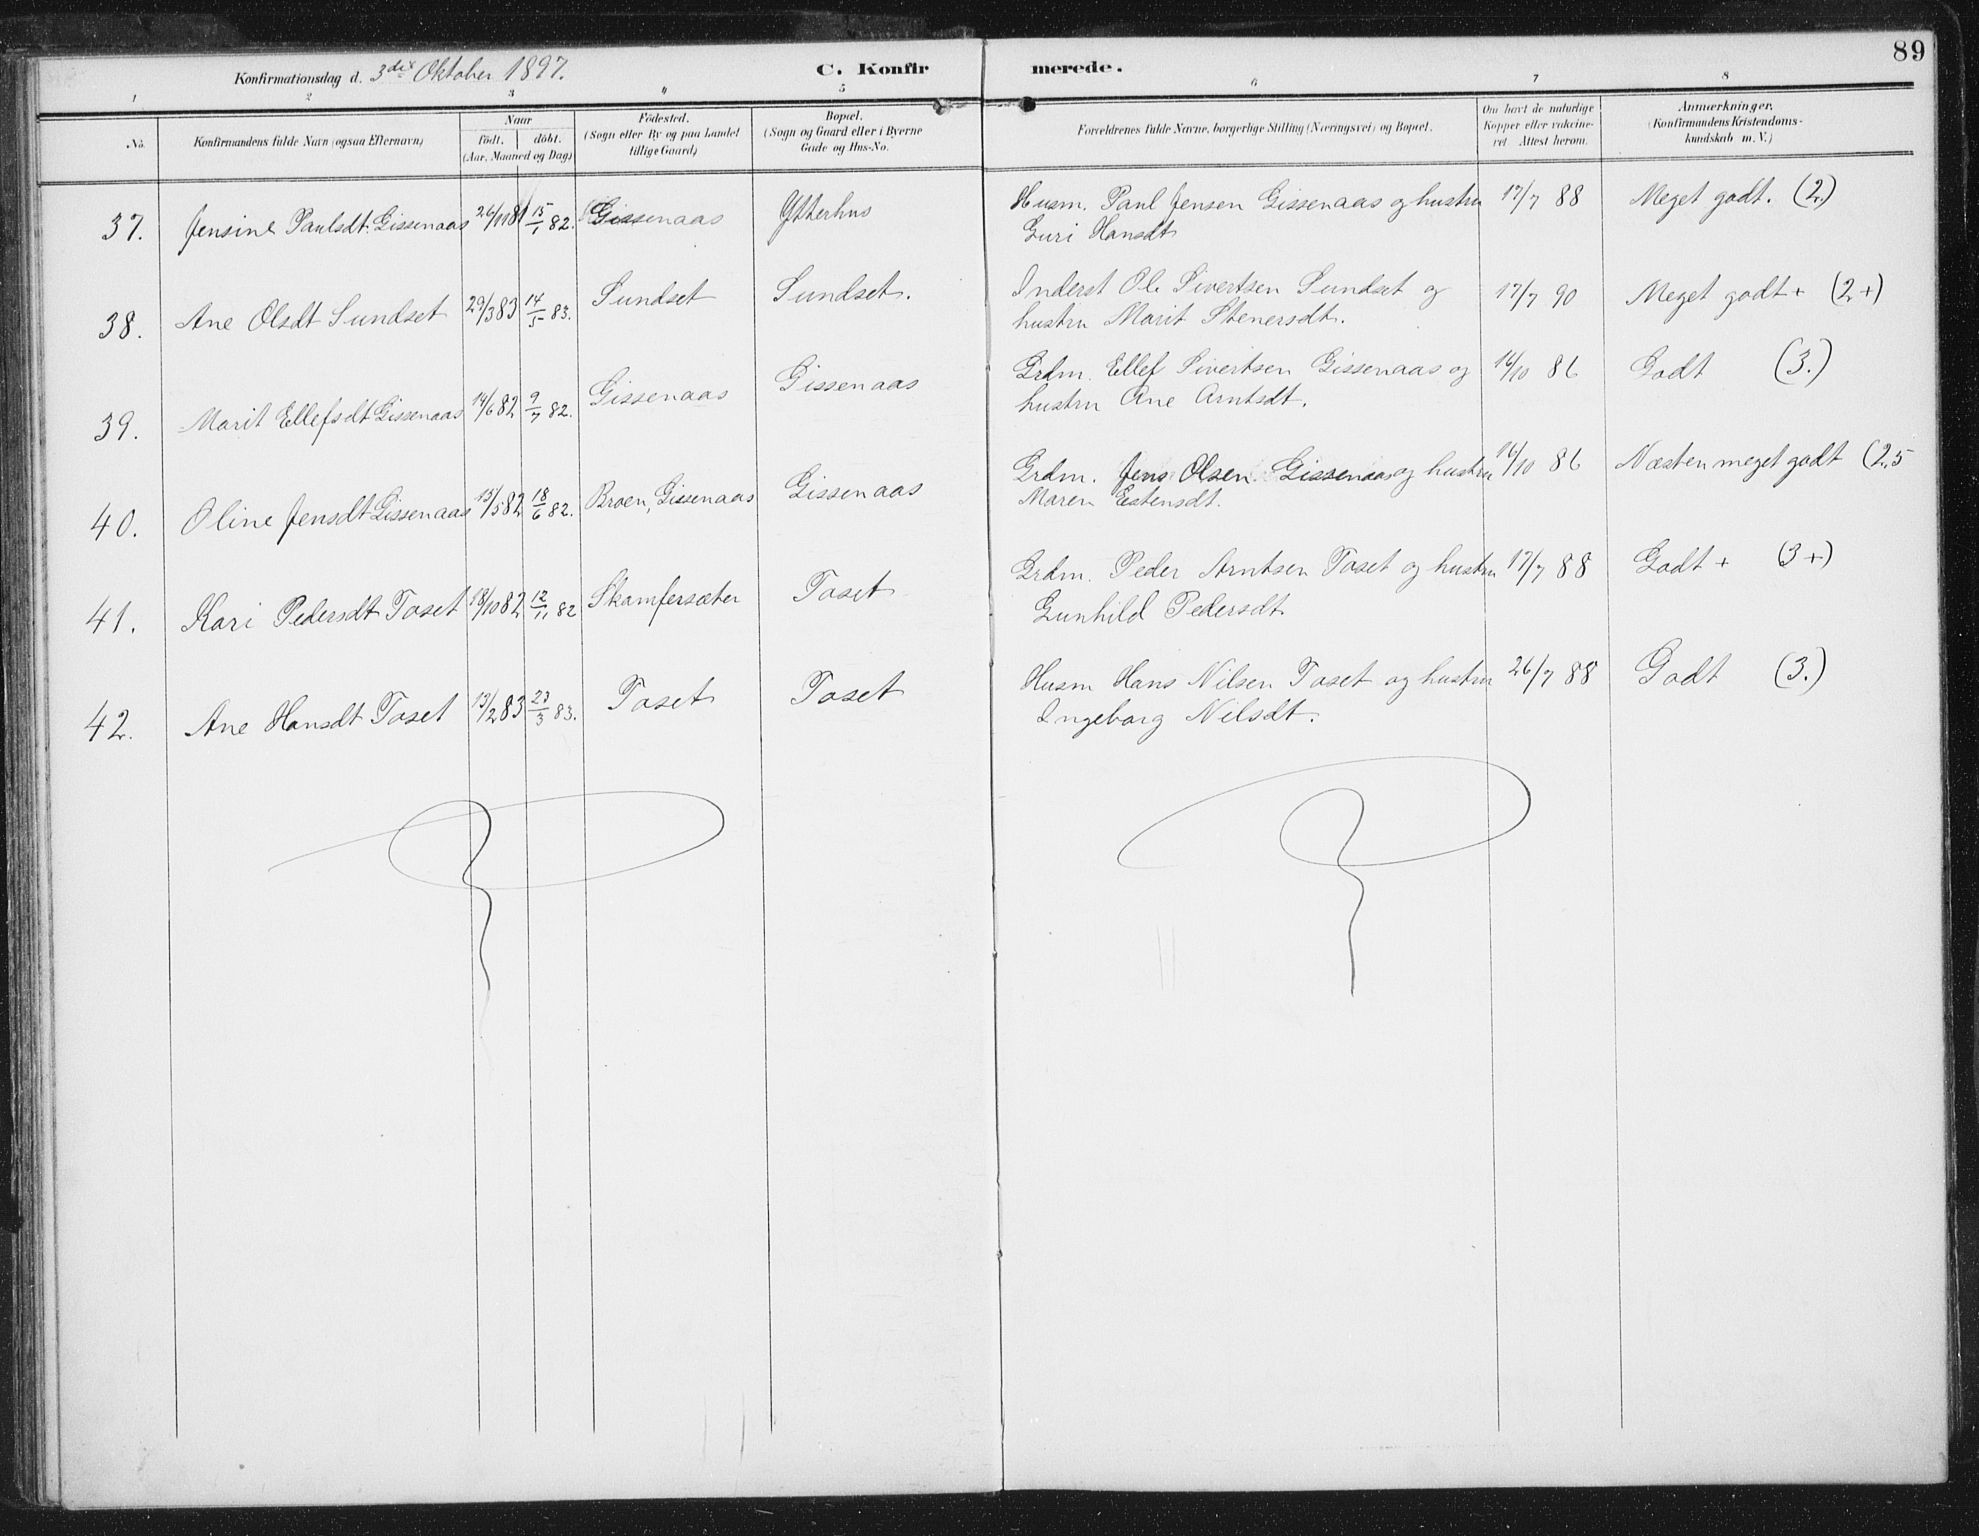 89
Konfirmationsdag d. 3die Oktober 1897.
C. Konfirmerede.
1 2 3 4 5 6 7 8
No.
Konfirmandens fulde Navn (ogsaa Efternavn)
Naar
födt. döbt.
(Aar, Maaned og Dag)
Födested.
(Sogn eller By og paa Landet
tillige Gaard)
Bopæl.
(Sogn og Gaard eller i Byerne
Gade og Hus-No.
Forældrenes fulde Navne, borgerlige Stilling (Næringsvei) og Bopæl.
Om havt de naturlige
Kopper eller vakcine-
ret. Attest herom.
Anmærkninger.
(Konfirmandens Kristendoms-
kundskab m. V.)
37. Jensine Paulsdt. Gissenaas 26/11 81 15/1 82. Gissenaas Ytterhus Husm. Paul Jensen Gissenaas og hustru 17/7 88 Meget godt. (2.)
Guri Hansdt.
38. Ane Olsdt Sundset 29/3 83 14/5 83. Sundset Sundset. Inderst Ole Sivertsen Sundset og 17/7 90 Meget godt + (2+)
hustru Marit Stenersdt.
39. Marit Ellefsdt Gissenaas 14/6 82 9/7 82. Gissenaas Gissenaas Grdm. Ellef Sivertsen Gissenaas og 16/10 86 Godt (3.)
hustru Ane Arntsdt.
40. Oline Jensdt Gissenaas 15/5 82 18/6 82. Broen, Gissenaas Gissenaas Grdm. Jens Olsen Gissenaas og hustru 16/10 86 Næsten meget godt (2,5
Maren Estensdt.
41. Kari Pedersdt Toset 18/10 82 12/11 82 Skamfersæter Toset Grdm. Peder Arntsen Toset og hustru 17/7 88 Godt + (3+)
Gunhild Pedersdt.
42. Ane Hansdt Toset 13/2 83 23/3 83. Toset Toset Husm Hans Nilsen Toset og hustru 26/7 88 Godt (3.)
Ingeborg Nilsdt.